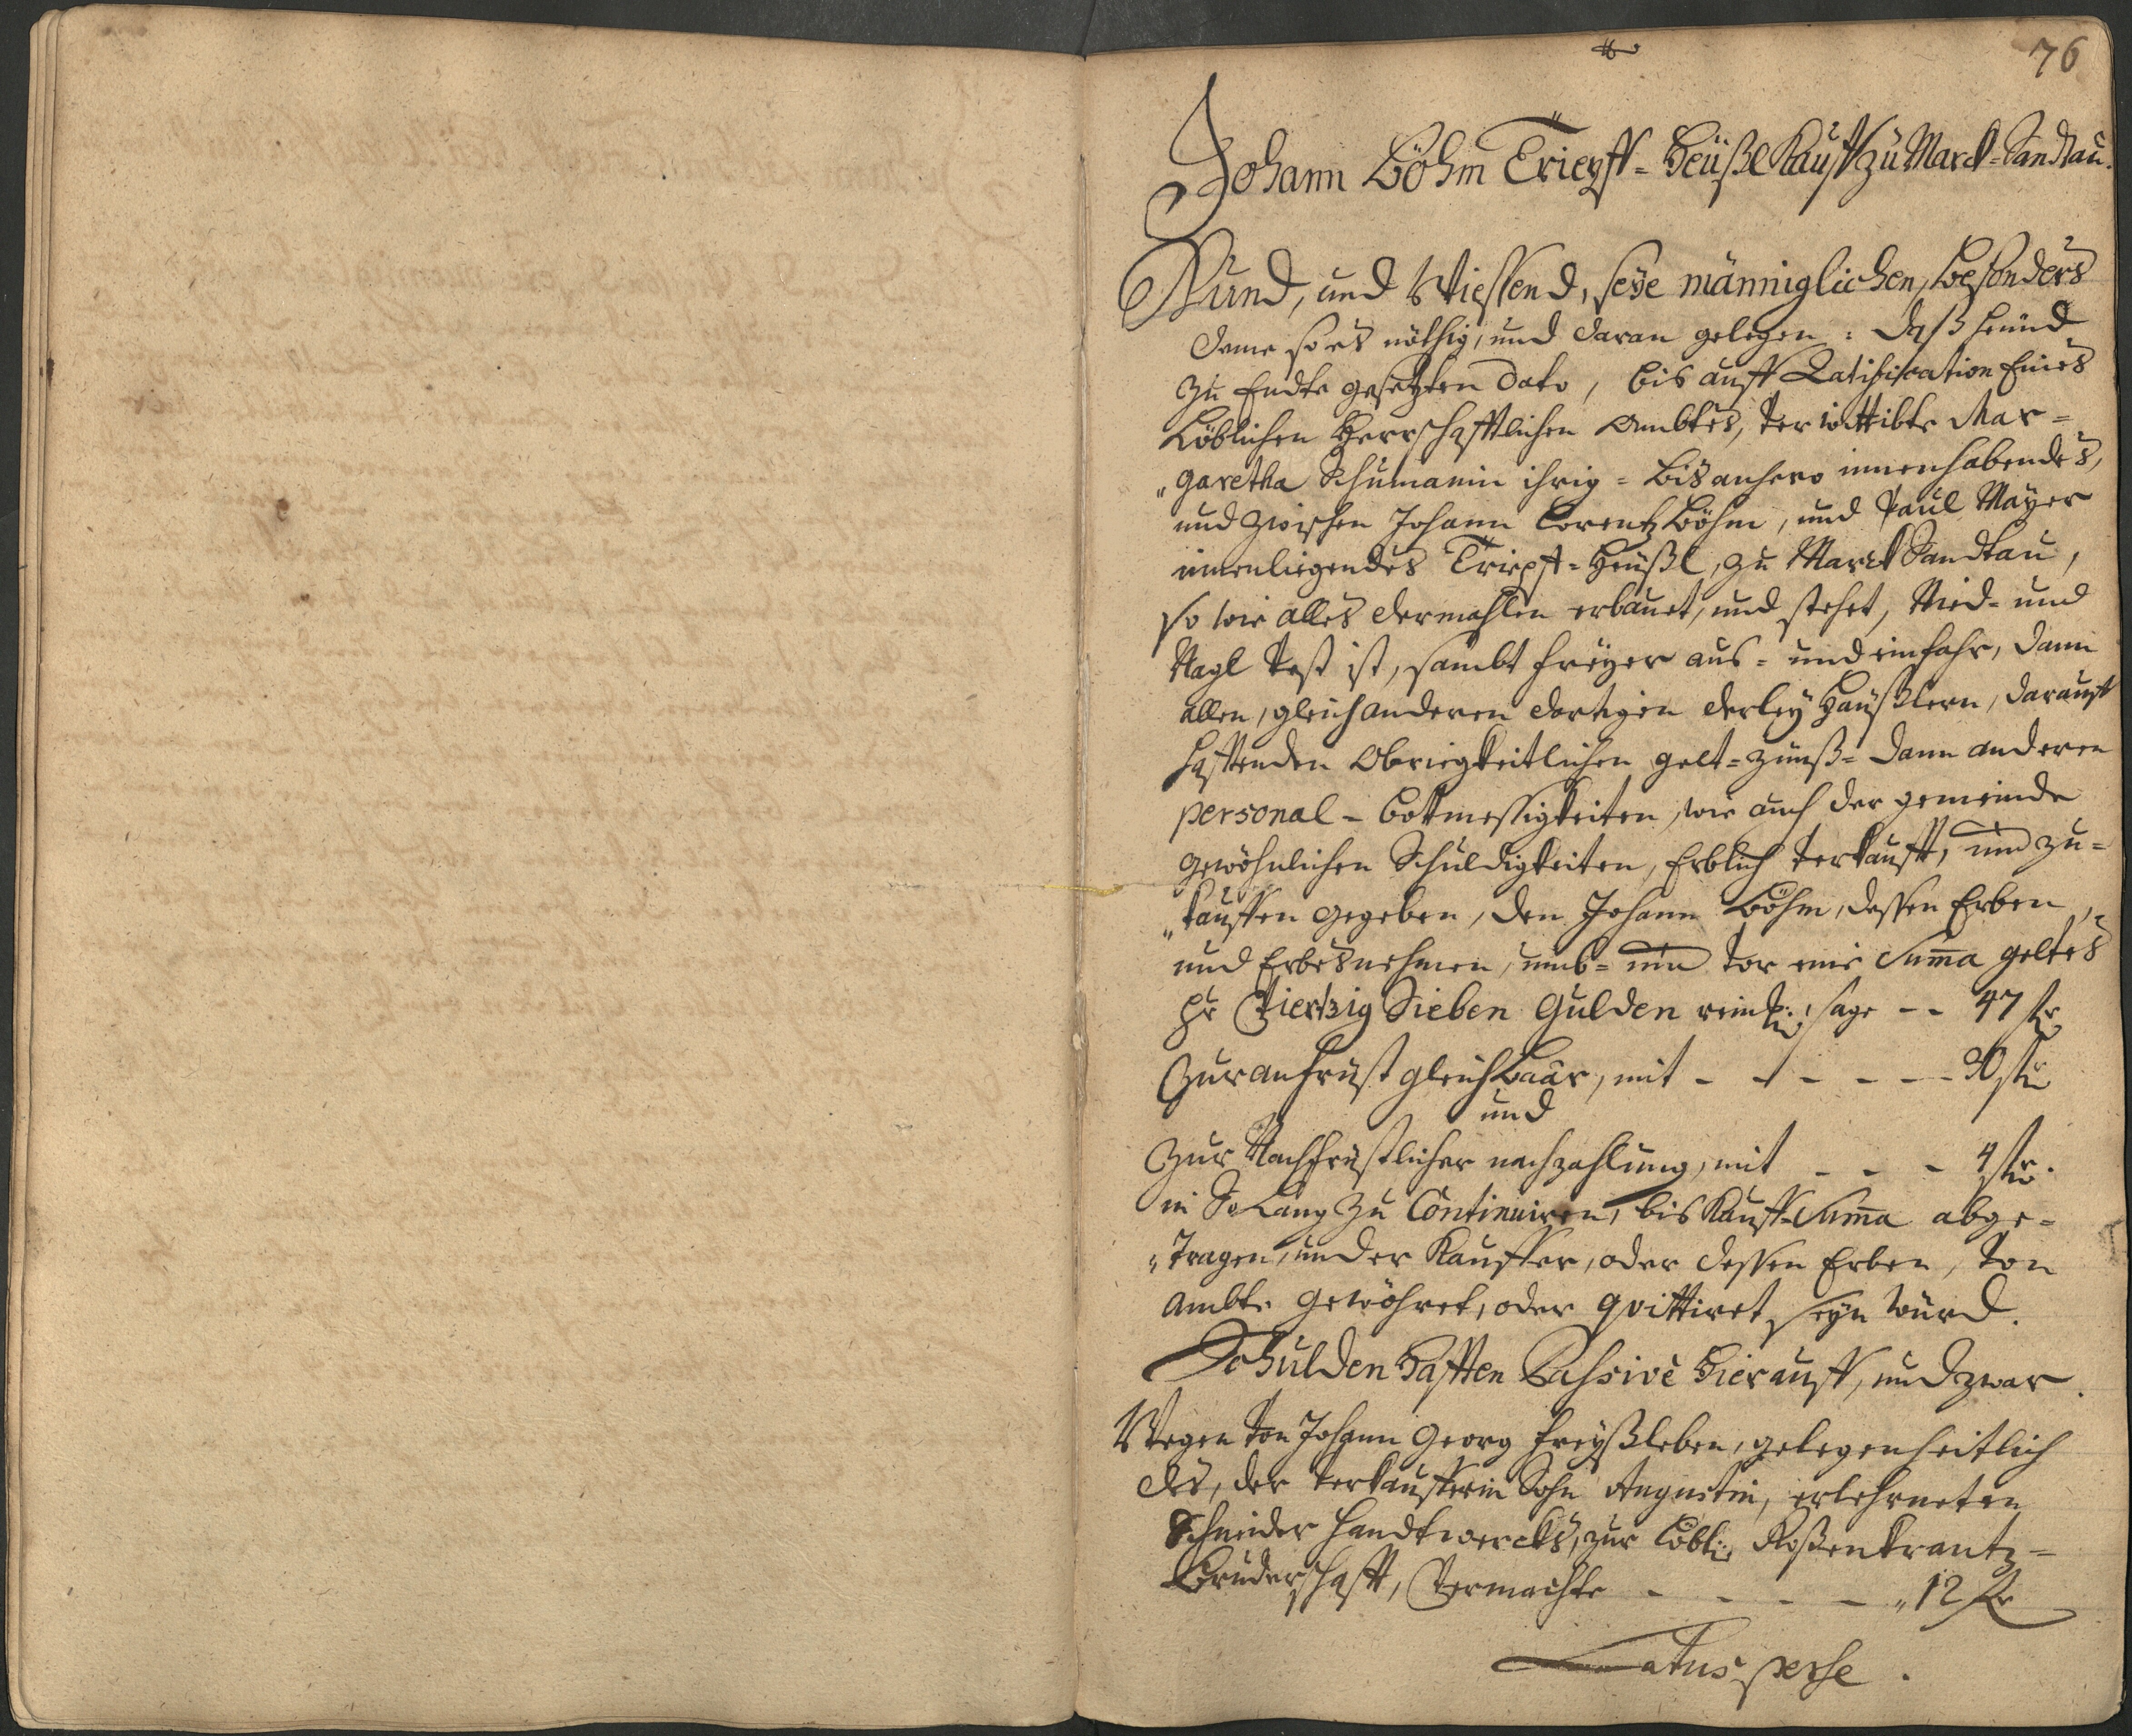 76
Johann Böhm Triepff-Heüßl Kauff zu Marck-Sandtau.
Kund, und Wiessend, seÿe männiglichen, besonders
deme so es nöthig, und daran gelegen: daß heünd
zu Endte gesetzten dato, bis auff Ratification Eines
Löblichen Herrschafftlichen Ambtes, verwittibte Mar-
"garetha Schumanin ihrig-bis anhero innenhabendes,
und zwischen Johann Lorentz Böhm, und Paul Maÿer
innenliegendes Triepff-Heüßl, zu Marck Sandtau,
so wie alles dermahlen erbauet, und stehet, Nied- und
Nagl vest ist, sambt freÿer aus- und einfahr, dann
allen, gleich anderen dortigen derleÿ Haüßlern, darauff
hafftenden Obriegkeitlichen gelt-zünß- dann anderen
personal-bottmessigkeiten, wie auch der gemeinde
gewöhnlichen Schuldigkeiten, Erblich verkaufft, und zu-
"kauffen gegeben, den Johann Böhm, dessen Erben,
und Erbesnehmen, umb- und vor eine Suma geltes
pr Viertzig Sieben Gulden reinl:, sage -- 47 fr
Zur anfrist gleich baar, mit - - - - - - 30 fr
und
Zur Nachfristlicher nachzahlung, mit - - - 4 fr.
in So Lang zu Continuiren, bis Kauff-Suma abge-
"tragen, und er Kauffer, oder dessen Erben, von
Ambte gewöhret, oder quittiret seÿn würd.
Schulden hafften Passivè hierauff, und zwar.
Wegen von Johann Georg Freÿßleben, gelegenheitlich
des, der verkaufferin Sohn Augustin, erlehrneten
Schneider Handtwercks, zur Löbl: Roßenkrantz-
Bruderschafft, Vermachte - - - - "12 fr
Latus per se.